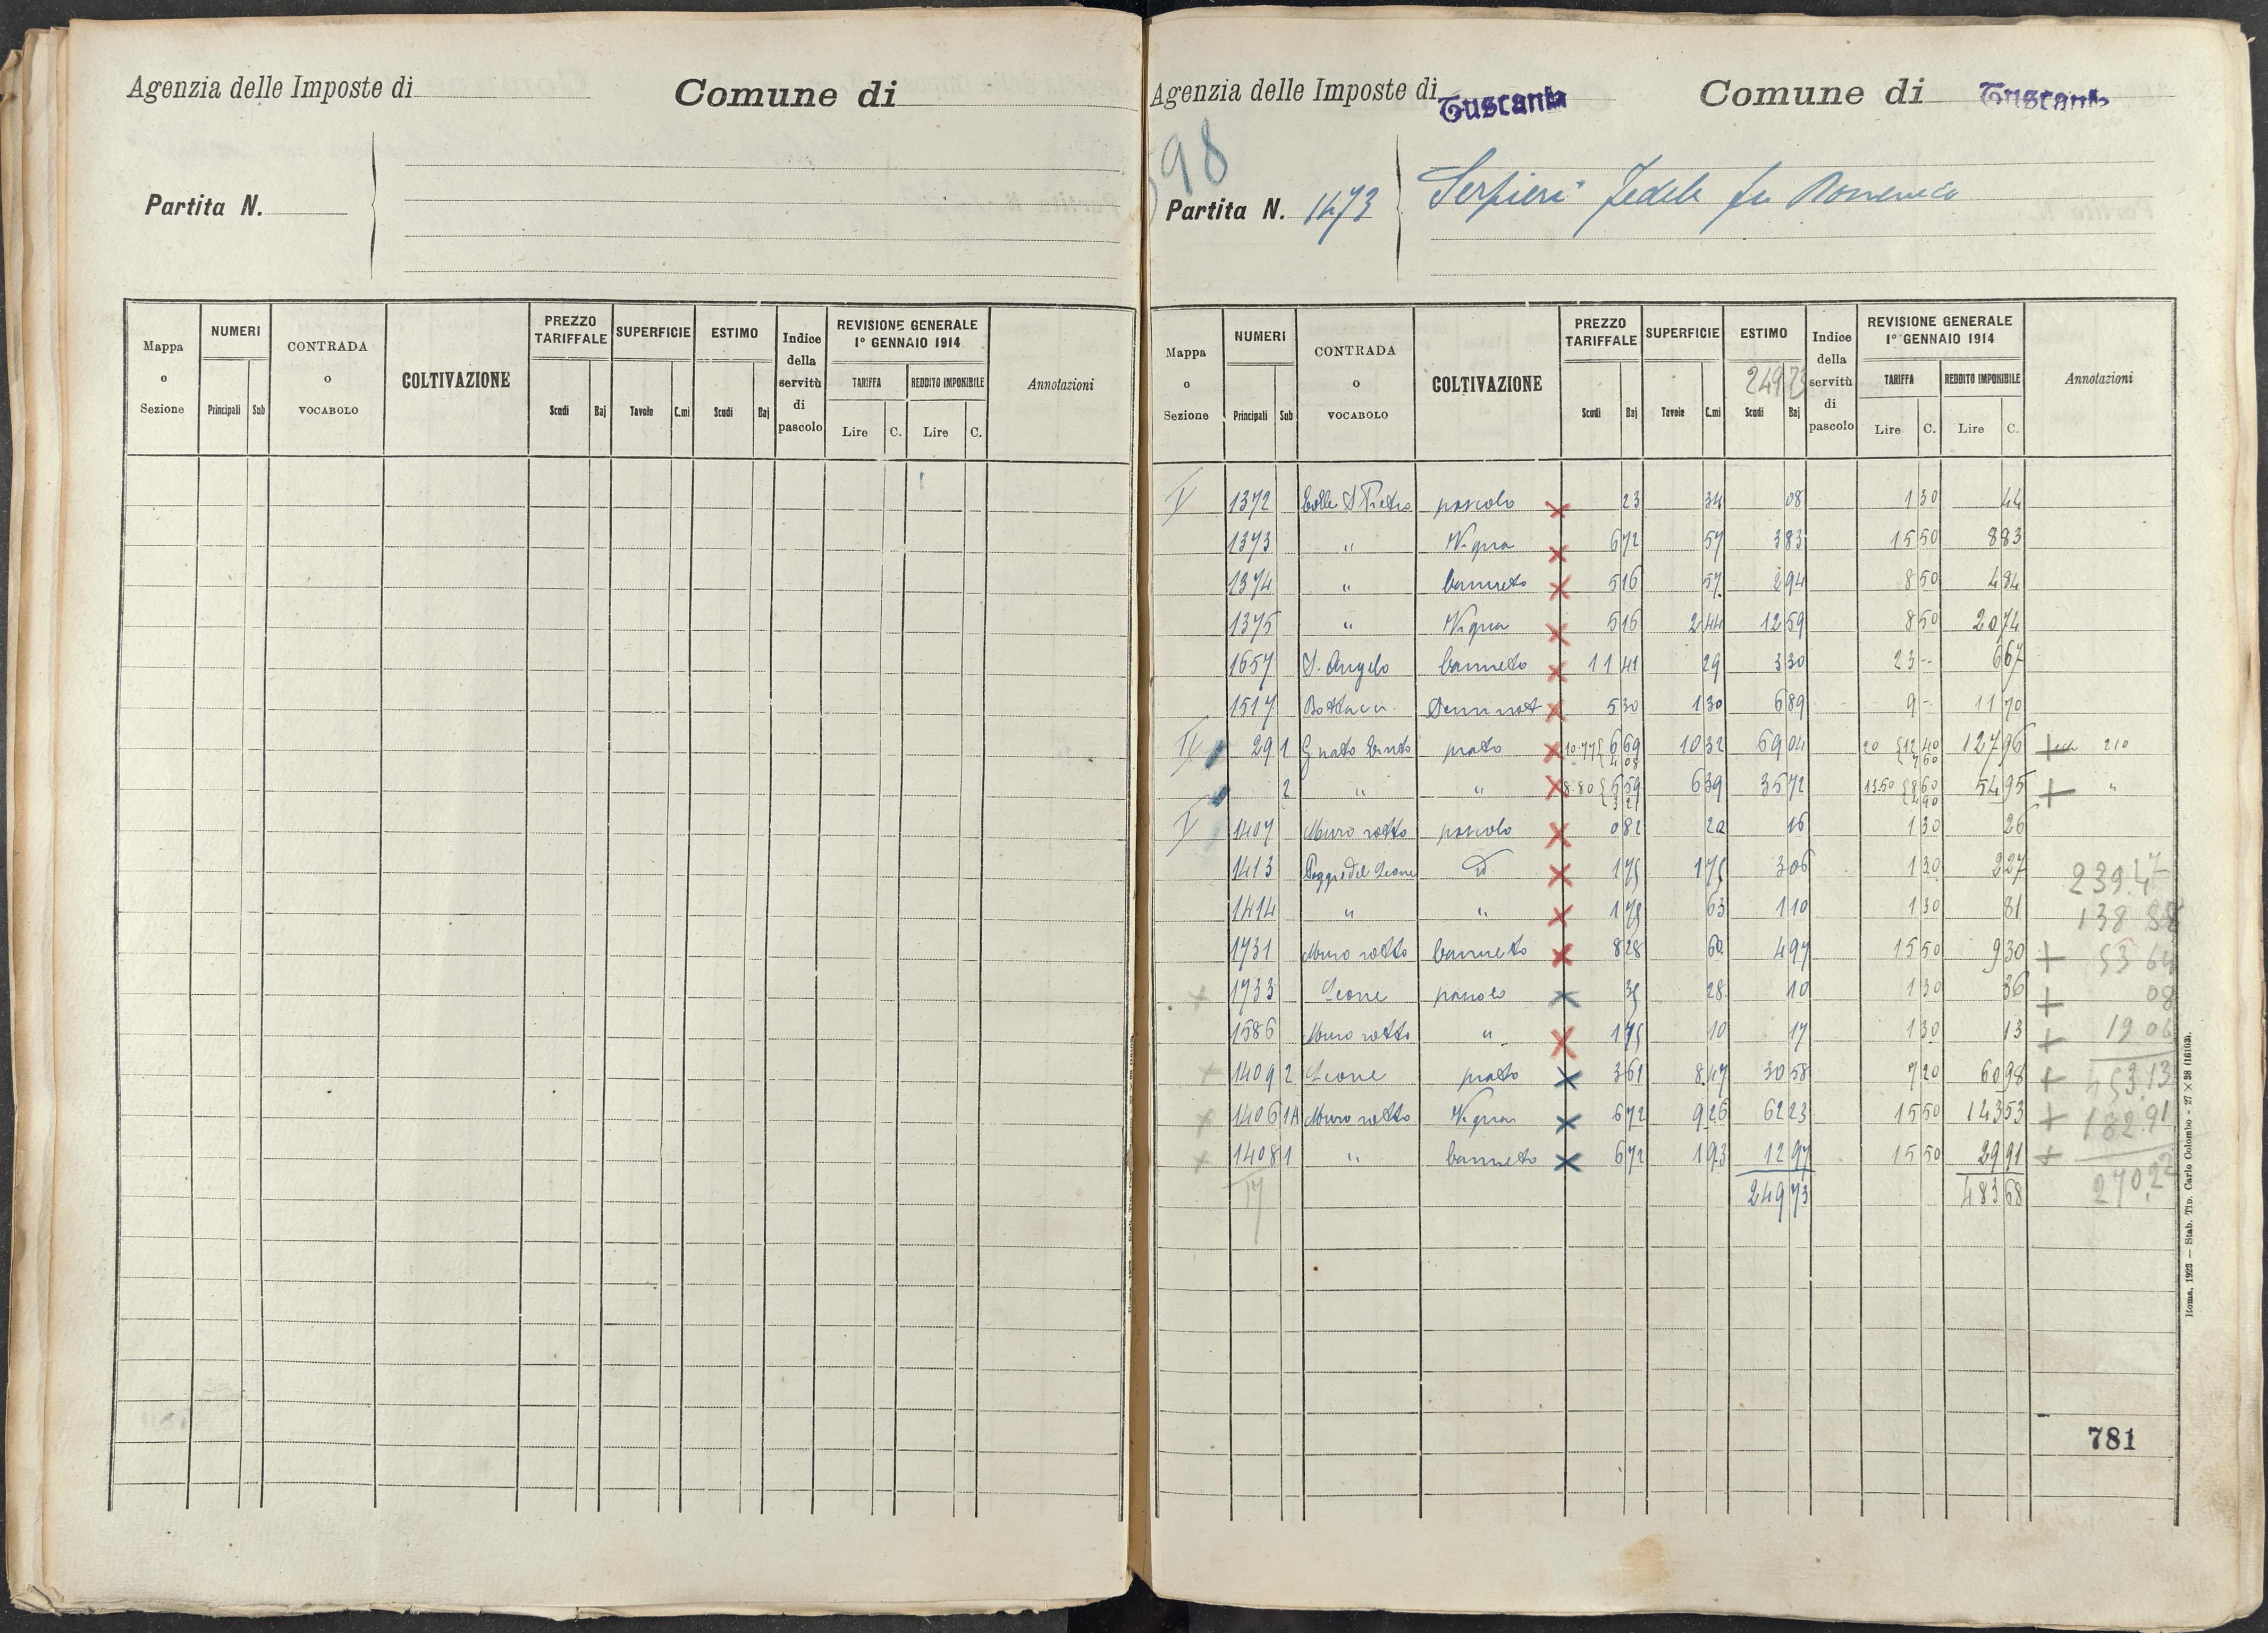 Agenzia delle Imposte di Comune di
Partita N.
Mappa o Sezione NUMERI Principali Sub CONTRADA o VOCABOLO COLTIVAZIONE PREZZO TARIFFALE Scudi Baj SUPERFICIE Tavole C.mi ESTIMO Scudi Baj Indice della servitù di pascolo REVISIONE GENERALE 1° GENNAIO 1914 TARIFFA Lire C. REDDITO IMPONIBILE Lire C. Annotazioni
Agenzia delle Imposte di Tuscania Comune di Tuscania
98
Partita N. 1473 Serpieri Fedele fu Domenico
Mappa o Sezione NUMERI Principali Sub CONTRADA o VOCABOLO COLTIVAZIONE PREZZO TARIFFALE Scudi Baj SUPERFICIE Tavole C.mi ESTIMO 249 73 Scudi Baj Indice della servitù di pascolo REVISIONE GENERALE 1° GENNAIO 1914 TARIFFA Lire C. REDDITO IMPONIBILE Lire C. Annotazioni
V 1372 Colle S Pietro pascolo 23 34 08 1 30 44
1373 " Vigna 6 72 57 3 83 15 50 8 83
1374 " Canneto 5 16 57 2 94 8 50 4 84
1375 " Vigna 5 16 2 44 12 59 8 50 20 74
1657 S. Angelo Canneto 11 41 29 3 30 23 - 6 67
1517 5 30 1 30 6 89 9 - 11 70
IV 29 1 prato 10.77 { 6 69 4 08 10 32 69 04 20 { 12 40 7 60 127 96 + 210
2 " " 8.80 { 5 59 3 21 6 39 35 72 13.50 { 8 60 4 90 54 95 + "
V 1407 Muro rotto pascolo 0 82 20 16 1 30 26
1413 Poggio del Leone id 1 75 1 75 3 06 1 30 2 27 239.47
1414 " " 1 75 63 1 10 1 30 81 138 88
1731 Muro rotto Canneto 8 28 60 4 97 15 50 9 30 + 53 64
1733 Leone pascolo 35 28 10 1 30 36 + 08
1586 Muro rotto " 1 75 10 17 1 30 13 + 19 06
1409 2 Leone prato 3 61 8 47 30 58 7 20 60 98 + 453.13
1406 1A Muro rotto Vigna 6 72 9 26 62 23 15 50 143 53 + 182.91
1408 1 " Canneto 6 72 1 93 12 97 15 50 29 91 +
17 249 73 483 68 270.22
781
Roma, 1923 — Stab. Tip. Carlo Colombo - 27 × 38 (16103).